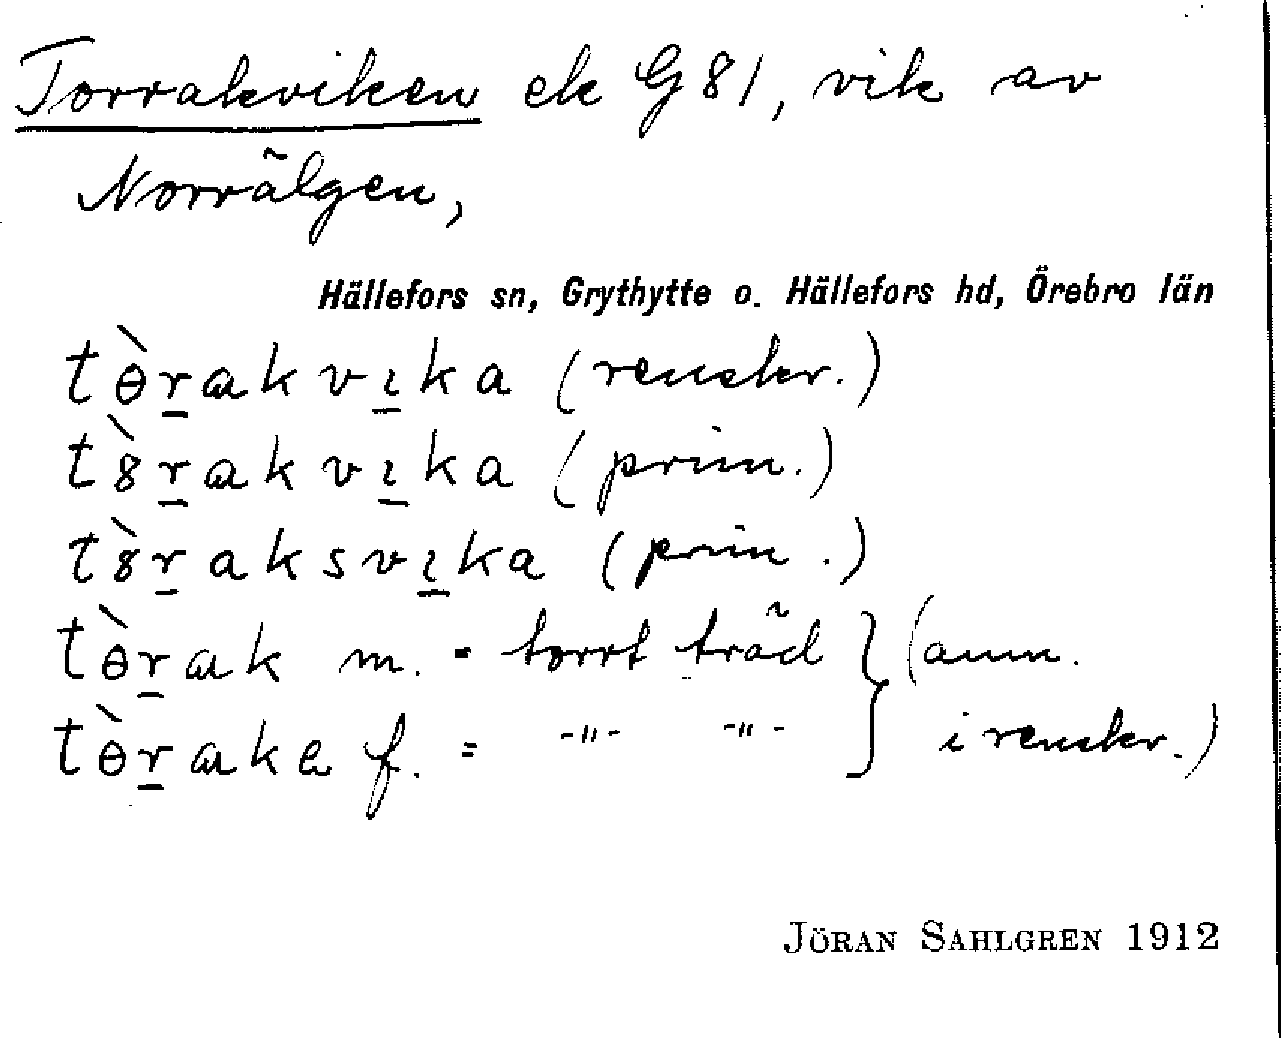 Torrakviken ek G 81, vik av
Norrälgen,
Hällefors sn, Grythytte o. Hällefors hd, Örebro län
tɵ̀r̲akvɩ̲ka (renskr.)
t8̀r̲akvɩ̲ka (prim.)
t8̀r̲aksvɩ̲ka (prim.)
tɵ̀r̲ak m. = torrt träd } (anm.
tɵ̀r̲aka f. = -"- -"- } i renskr.)
JÖRAN SAHLGREN 1912